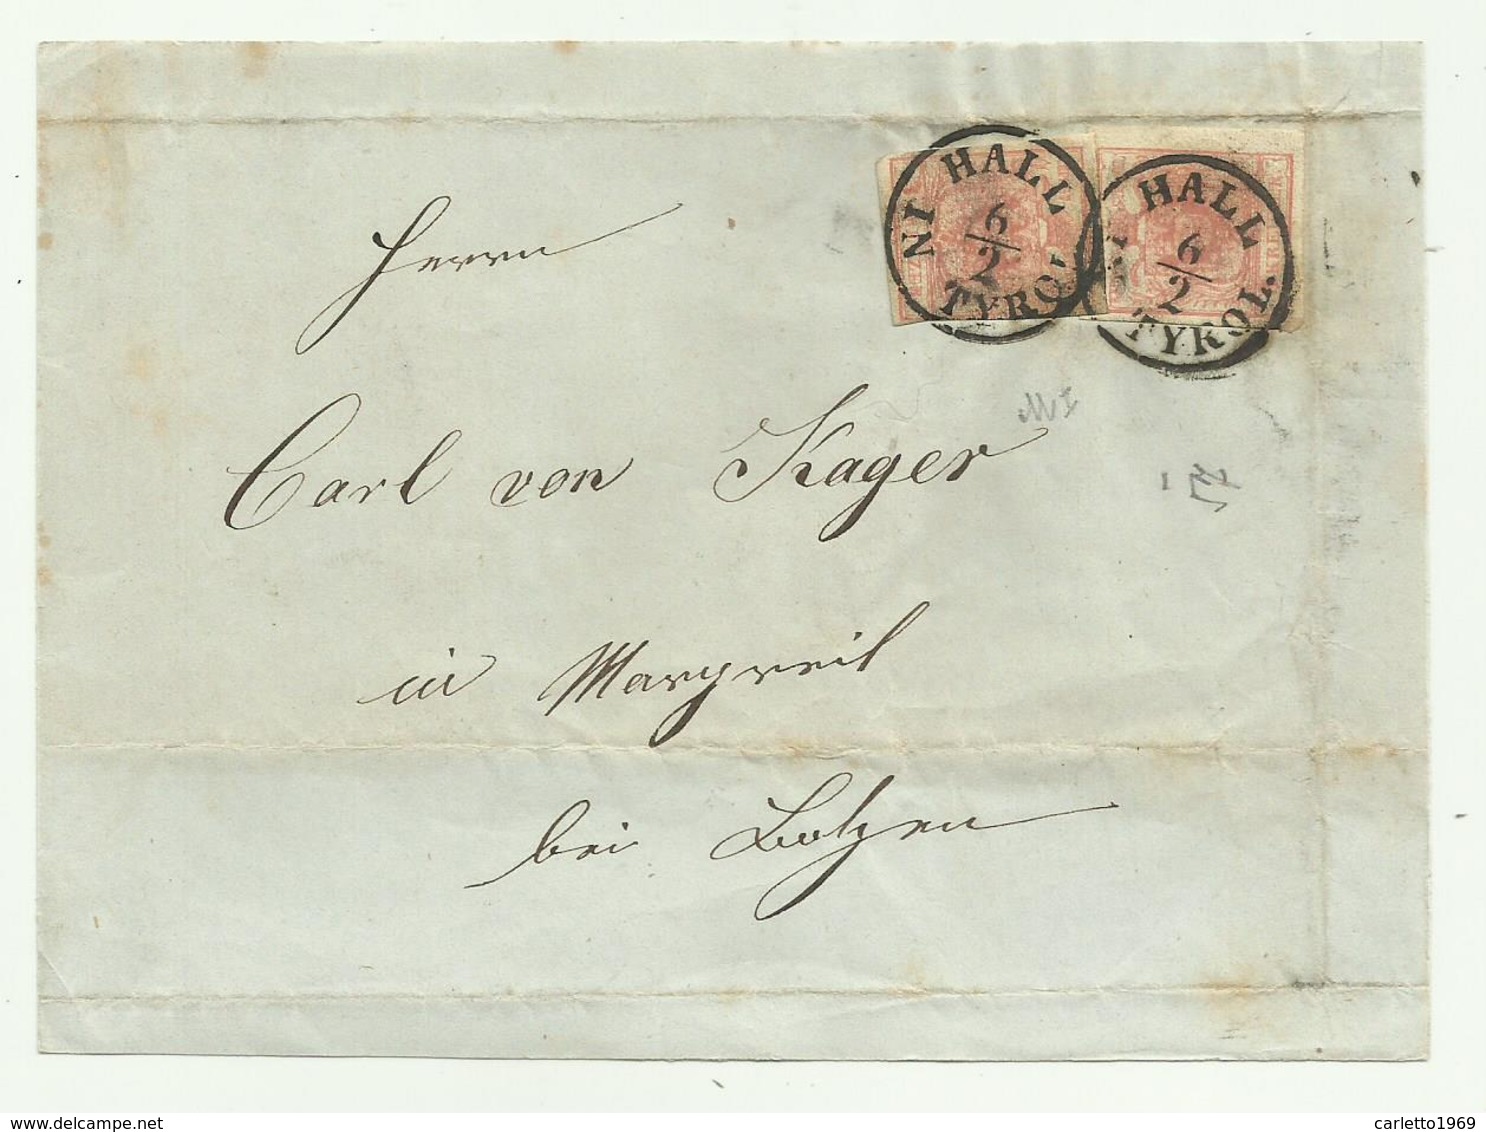 HALL
IN
6/2
TYROL.
HALL
6/2
TYROL.
Herrn
Carl von Kager
MI
in Margreid
bei Botzen
www.delcampe.net
carletto1969